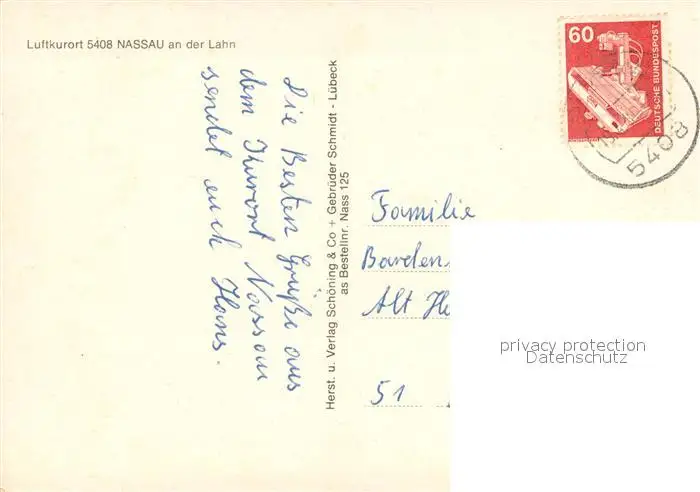 Luftkurort 5408 NASSAU an der Lahn
Die Besten Grüße aus
dem Kurort Nassau
sendet euch Hans.
Herst. u. Verlag Schöning & Co + Gebrüder Schmidt - Lübeck
as Bestellnr. Nass 125
60
DEUTSCHE BUNDESPOST
5408
Familie
Barden
Alt He
51
privacy protection
Datenschutz